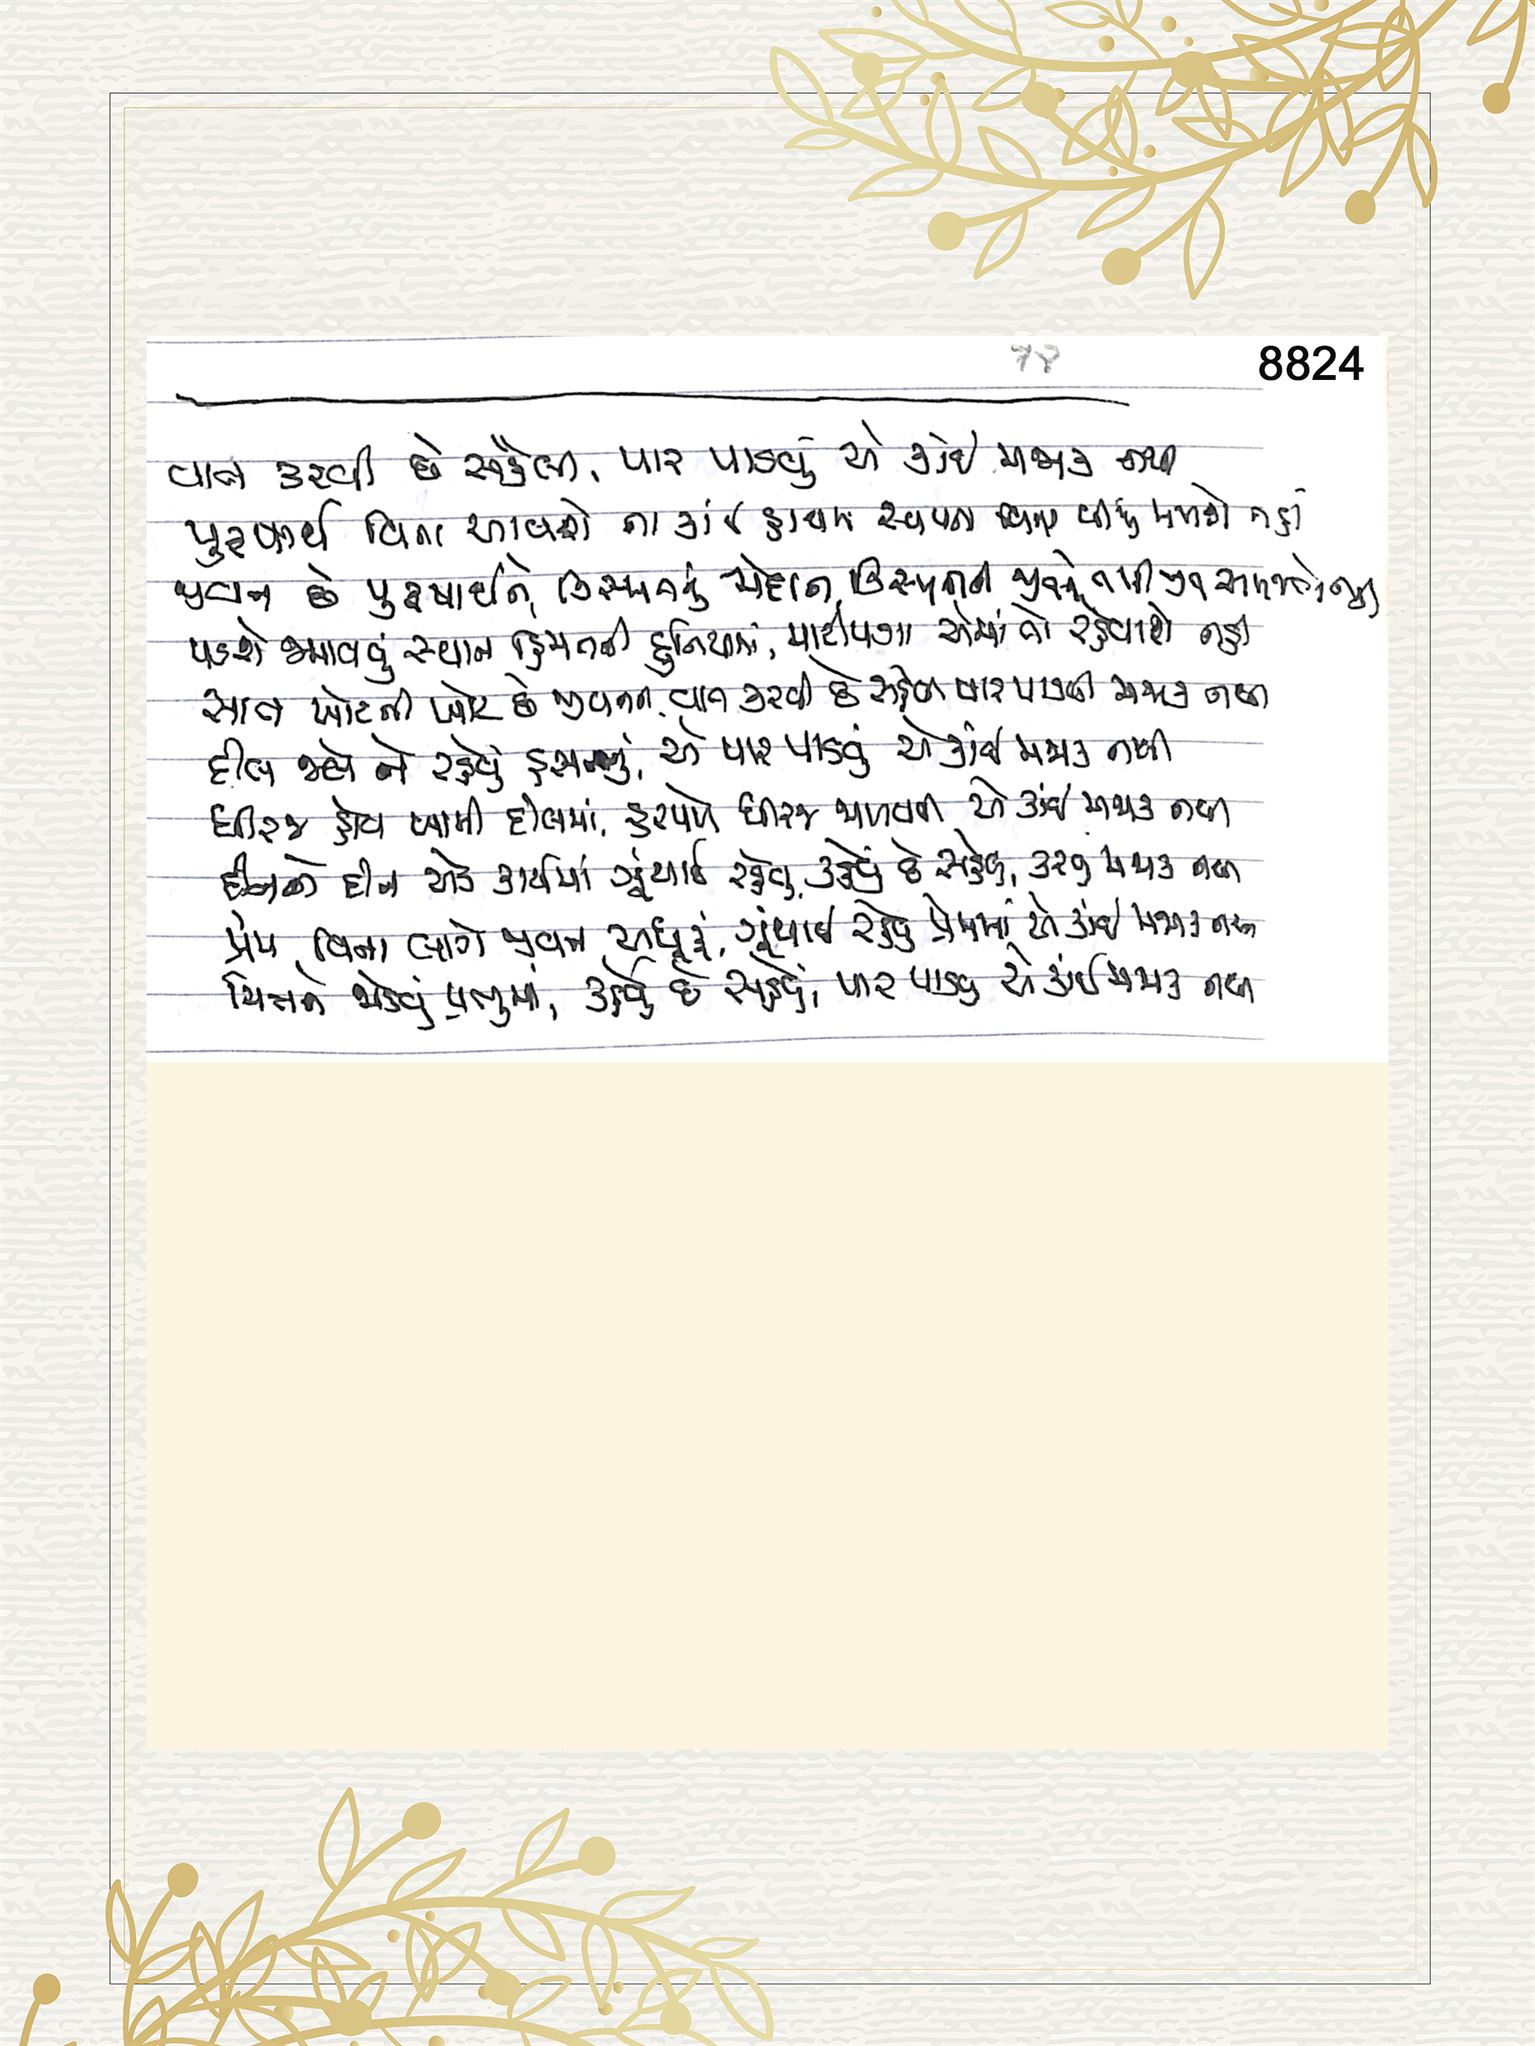 ૧૪
8824
વાત કરવી છે સહેલી, પાર પાડવું એ કાંઈ મજાક નથી
પુરુષાર્થ વિના આવશે ના કાંઈ હાથમાં સ્વપ્ન વિના બીજું મળશે નહીં
જીવન છે પુરુષાર્થને, કિસ્મતનું મેદાન, કિસ્મતની
પડશે જમાવવું સ્થાન હિંમતની દુનિયામાં, માટીપગા એમાં તો રહેવાશે નહીં
ખોટની ખોટ છે જીવનમાં, વાત કરવી છે સહેલી પાર પાડવી મજાક નથી
દીલ જલે ને રહેવું હસતું, એ પાર પાડવું એ કાંઈ મજાક નથી
ધીરજ હોય ખામી દીલમાં, હરપળે ધીરજ જાળવવી એ કાંઈ મજાક નથી
દીનકે દીન એક કાર્યમાં ગૂંથાઈ રહેવું, કહેવું છે સહેલું, કરવું મજાક નથી
પ્રેમ વિના લાગે જીવન અધૂરું, ગૂંથાઈ રહેવું પ્રેમમાં એ કાંઈ મજાક નથી
ચિત્તને જોડવું પ્રભુમાં, કહેવું છે સહેલું, પાર પાડવું એ કાંઈ મજાક નથી